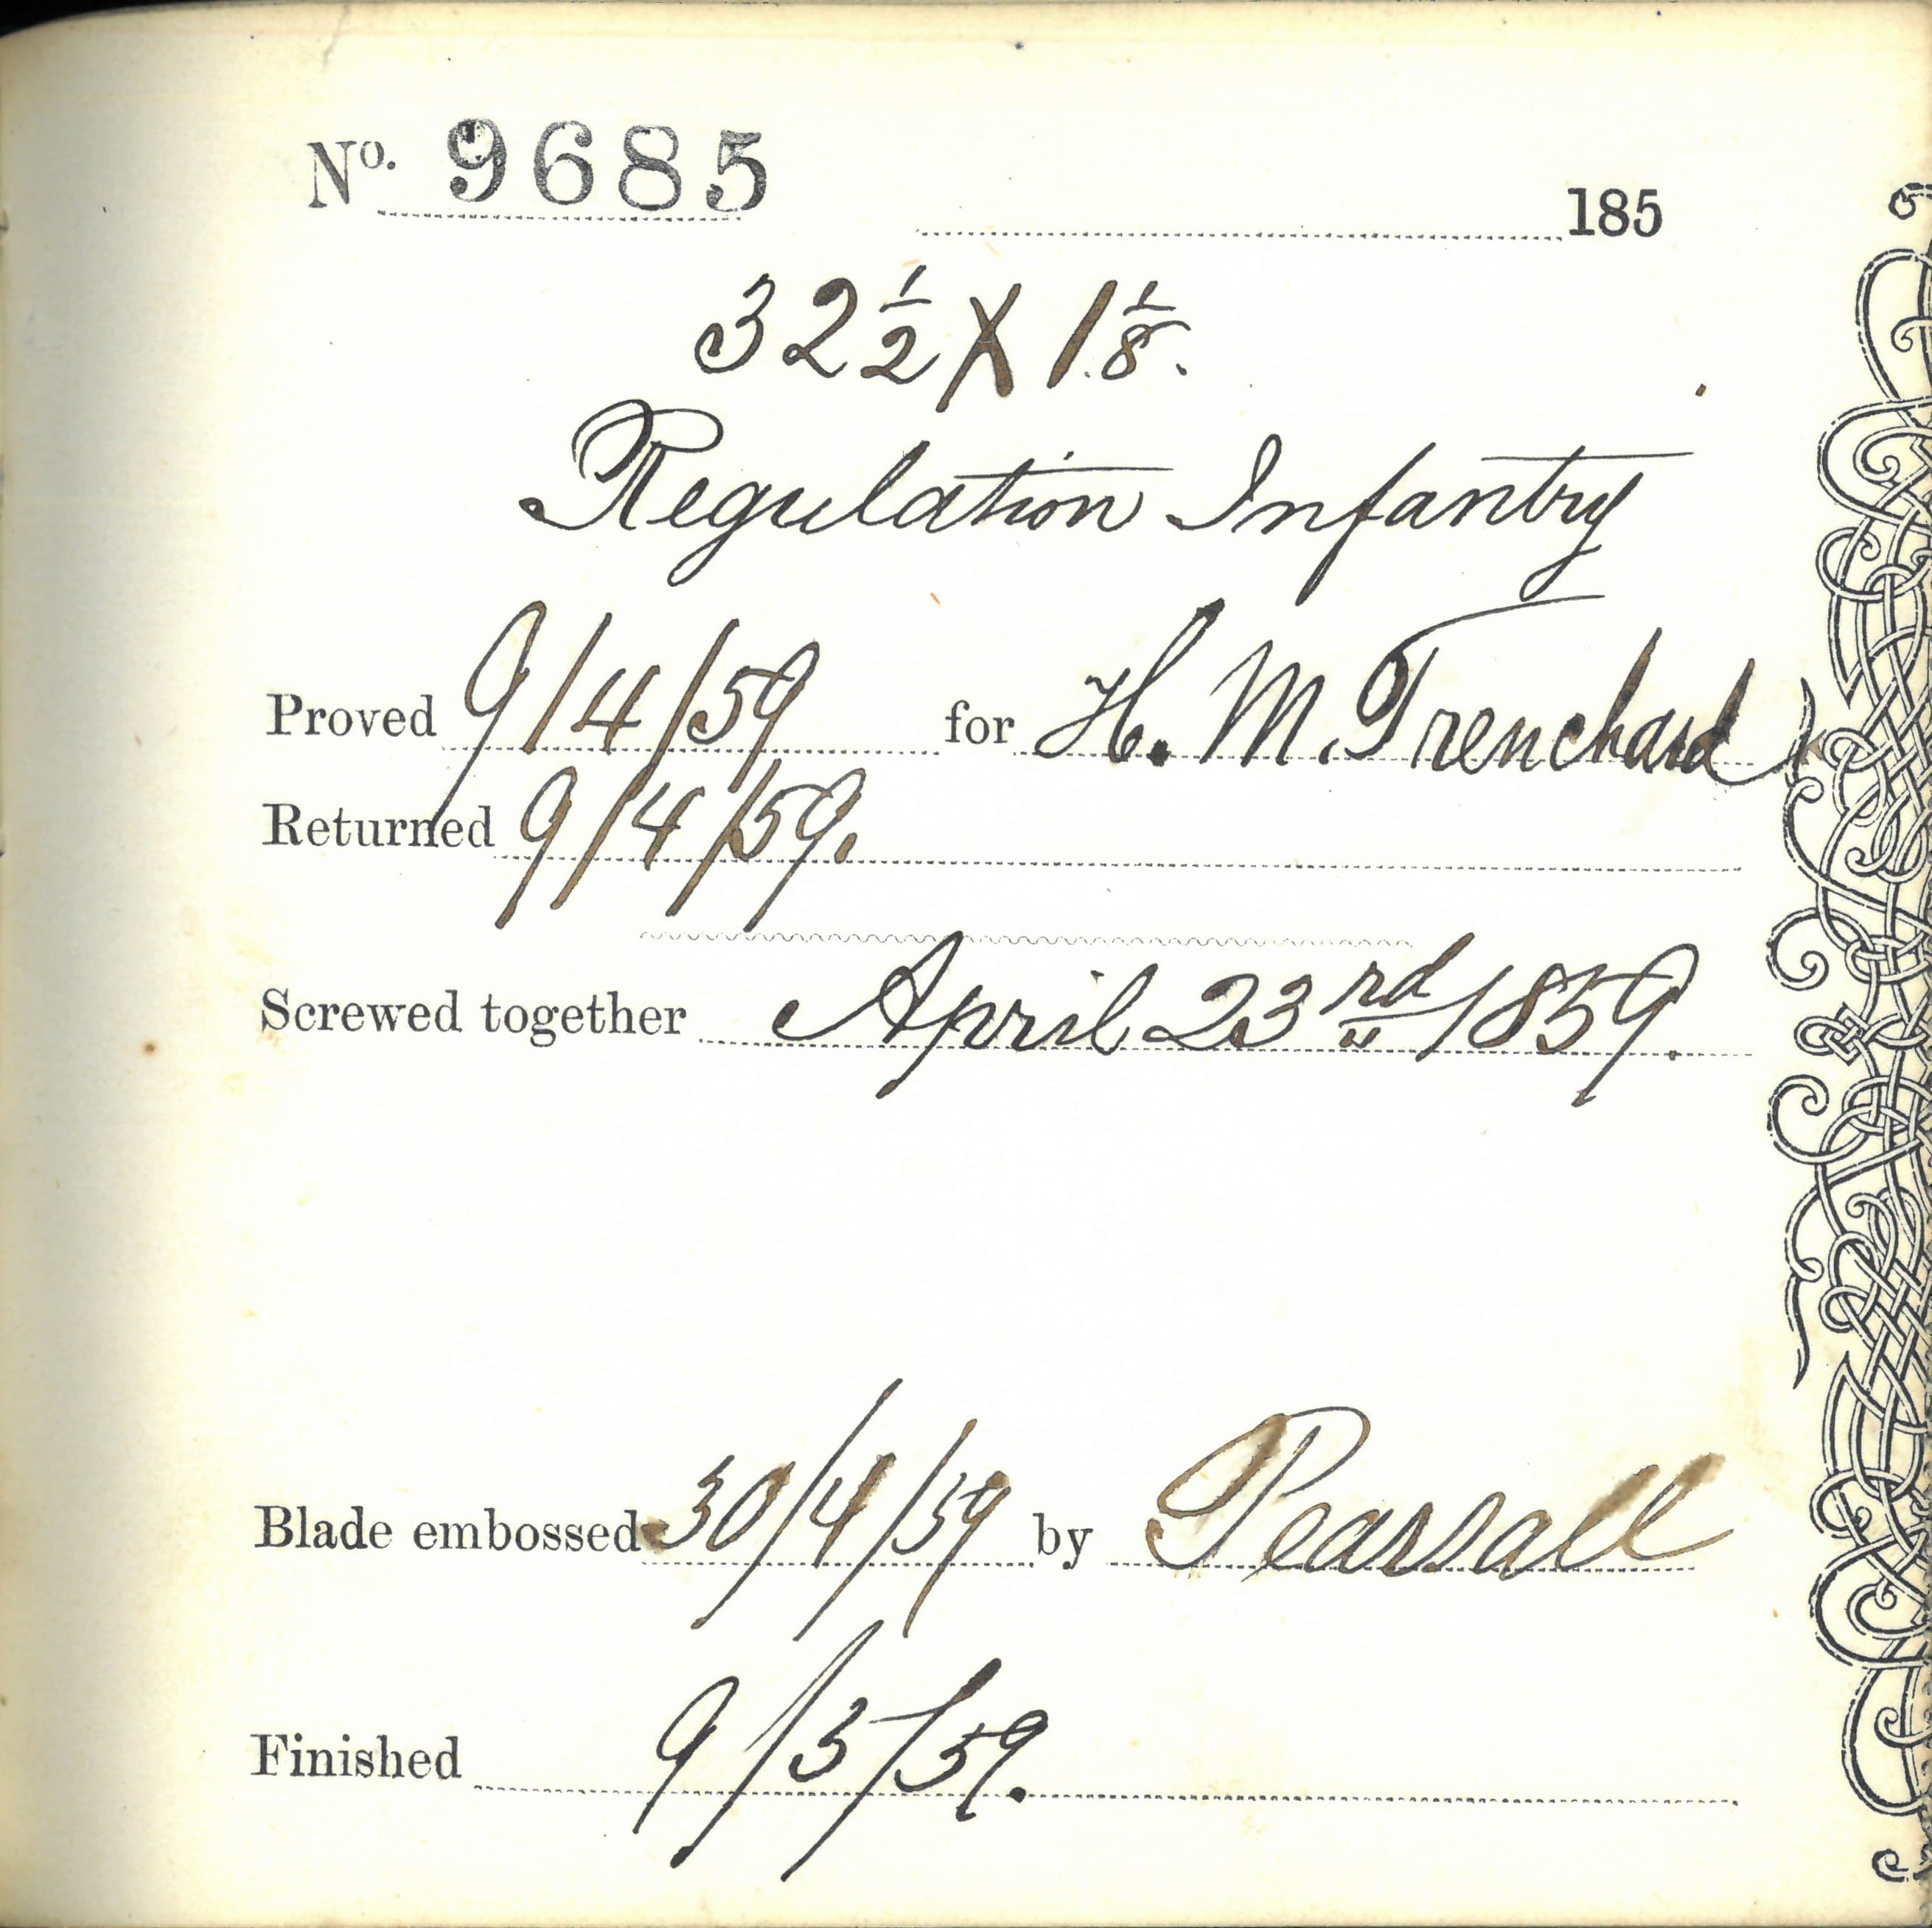 No. 9685
185
32 1/2 X 1 1/8.
Regulation Infantry
Proved 9/4/59 for H. M. Trenchard
Returned 9/4/59.
Screwed together April 23rd 1859.
Blade embossed 30/4/59 by Pearsall
Finished 9/5/59.